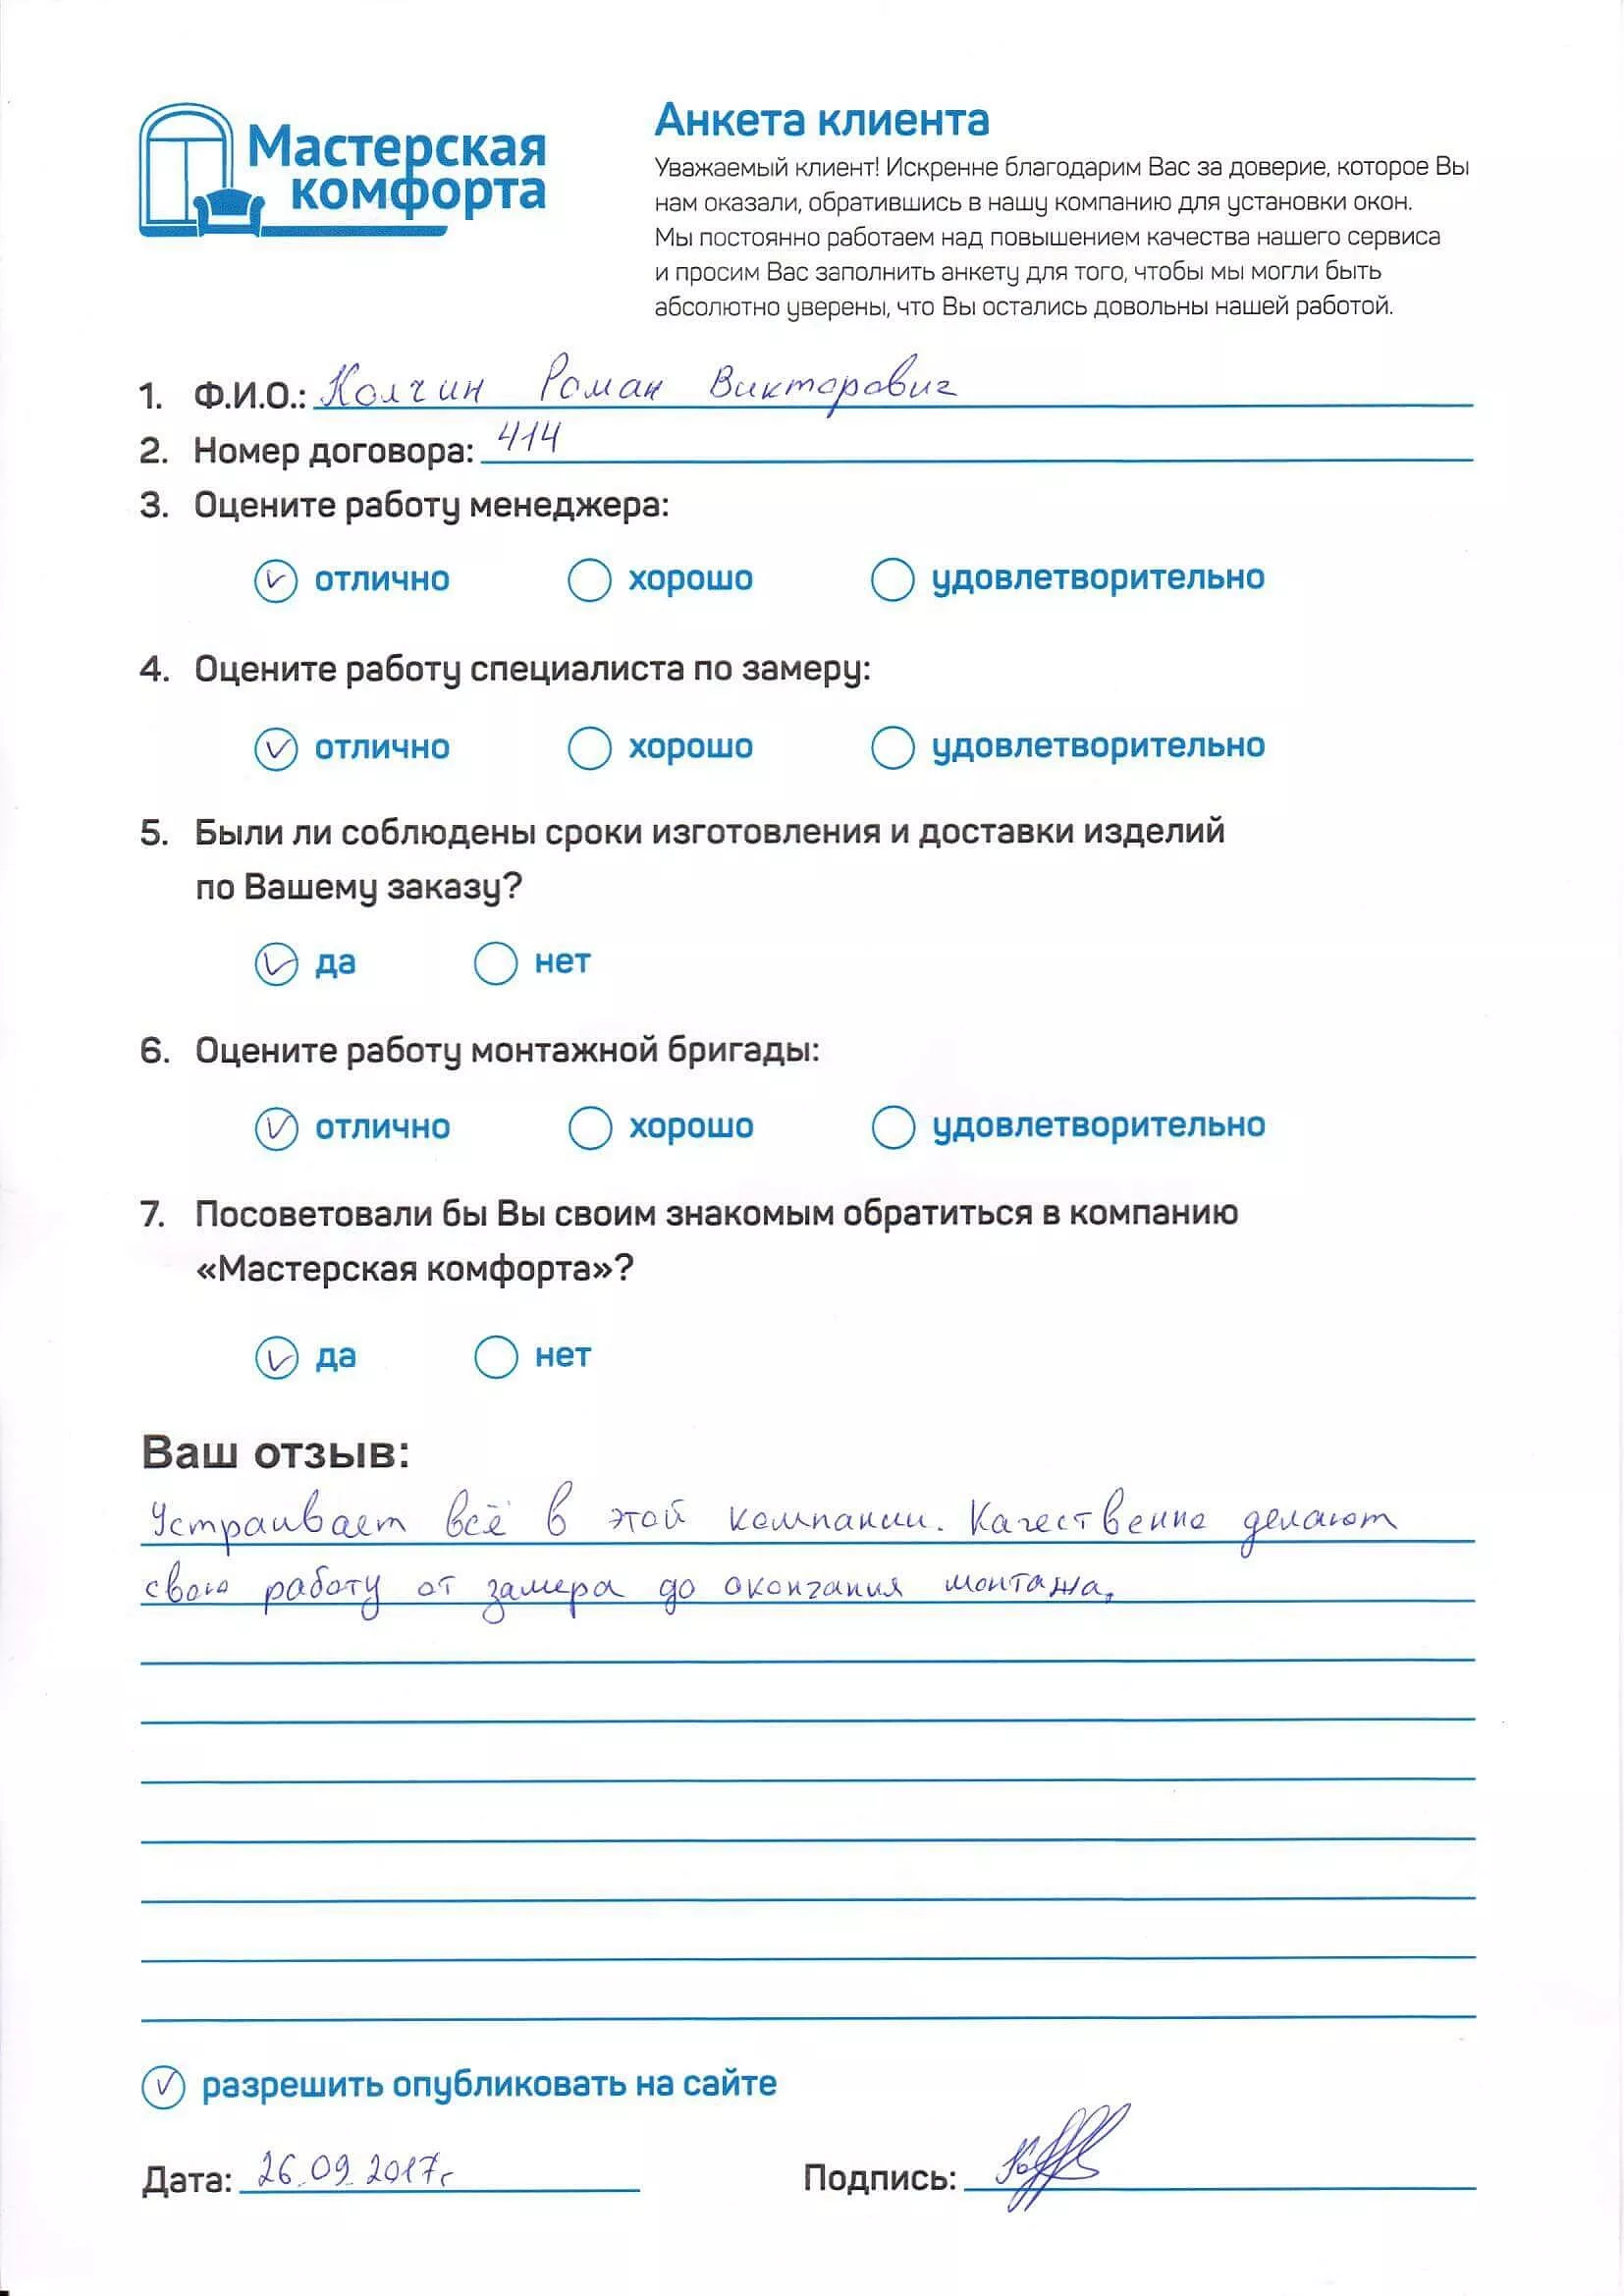 Мастерская
комфорта
Анкета клиента
Уважаемый клиент! Искренне благодарим Вас за доверие, которое Вы
нам оказали, обратившись в нашу компанию для установки окон.
Мы постоянно работаем над повышением качества нашего сервиса
и просим Вас заполнить анкету для того, чтобы мы могли быть
абсолютно уверены, что Вы остались довольны нашей работой.
1. Ф.И.О.: Колчин Роман Викторович
2. Номер договора: 414
3. Оцените работу менеджера:
отлично хорошо удовлетворительно
4. Оцените работу специалиста по замеру:
отлично хорошо удовлетворительно
5. Были ли соблюдены сроки изготовления и доставки изделий
по Вашему заказу?
да нет
6. Оцените работу монтажной бригады:
отлично хорошо удовлетворительно
7. Посоветовали бы Вы своим знакомым обратиться в компанию
«Мастерская комфорта»?
да нет
Ваш отзыв:
Устраивает всё в этой компании. Качественно делают
свою работу от замера до окончания монтажа.
разрешить опубликовать на сайте
Дата: 26.09.2017г Подпись: